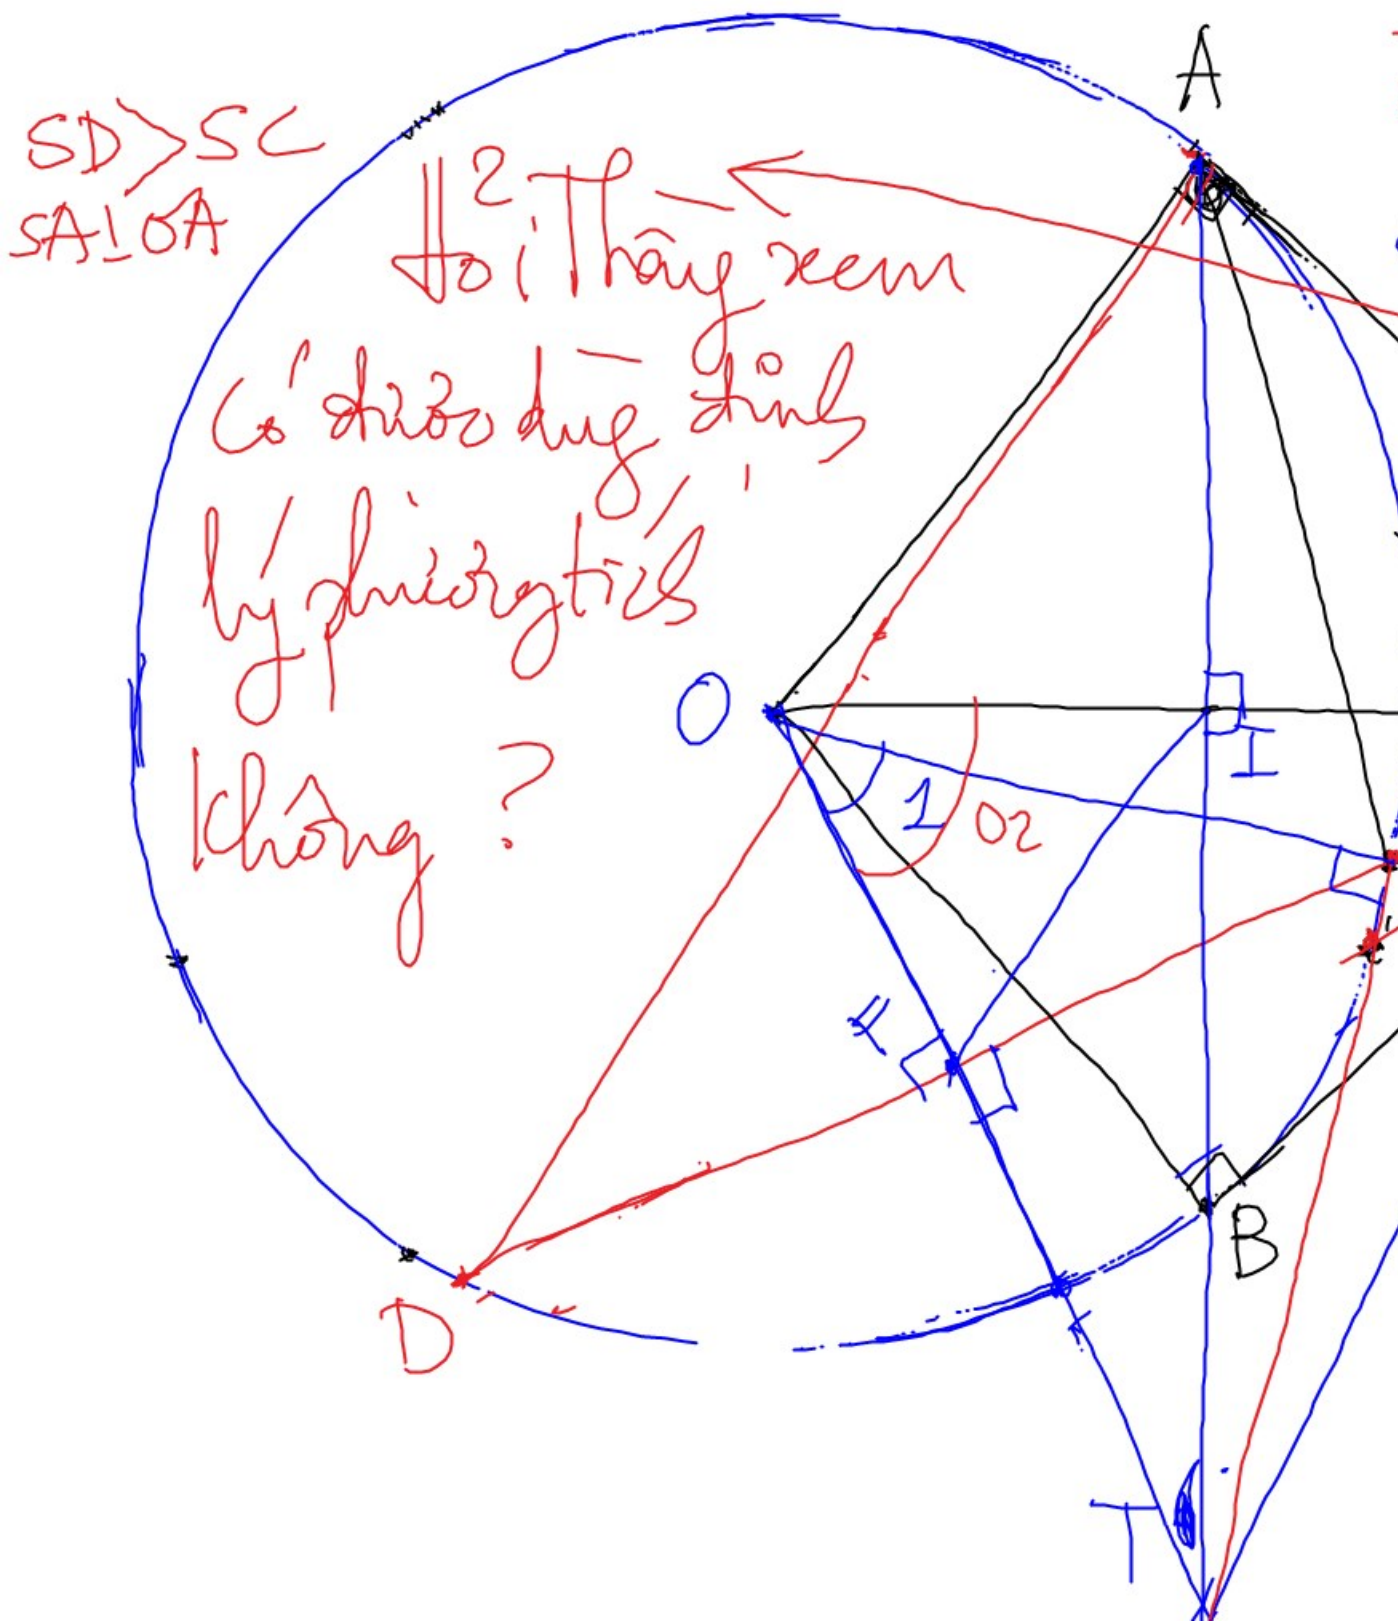 A
SD>SC
SA⊥OA
Hỏi² Thầy xem
có được dùng định
lý phương tích
không ?
O
I
1
O2
H
B
D
T